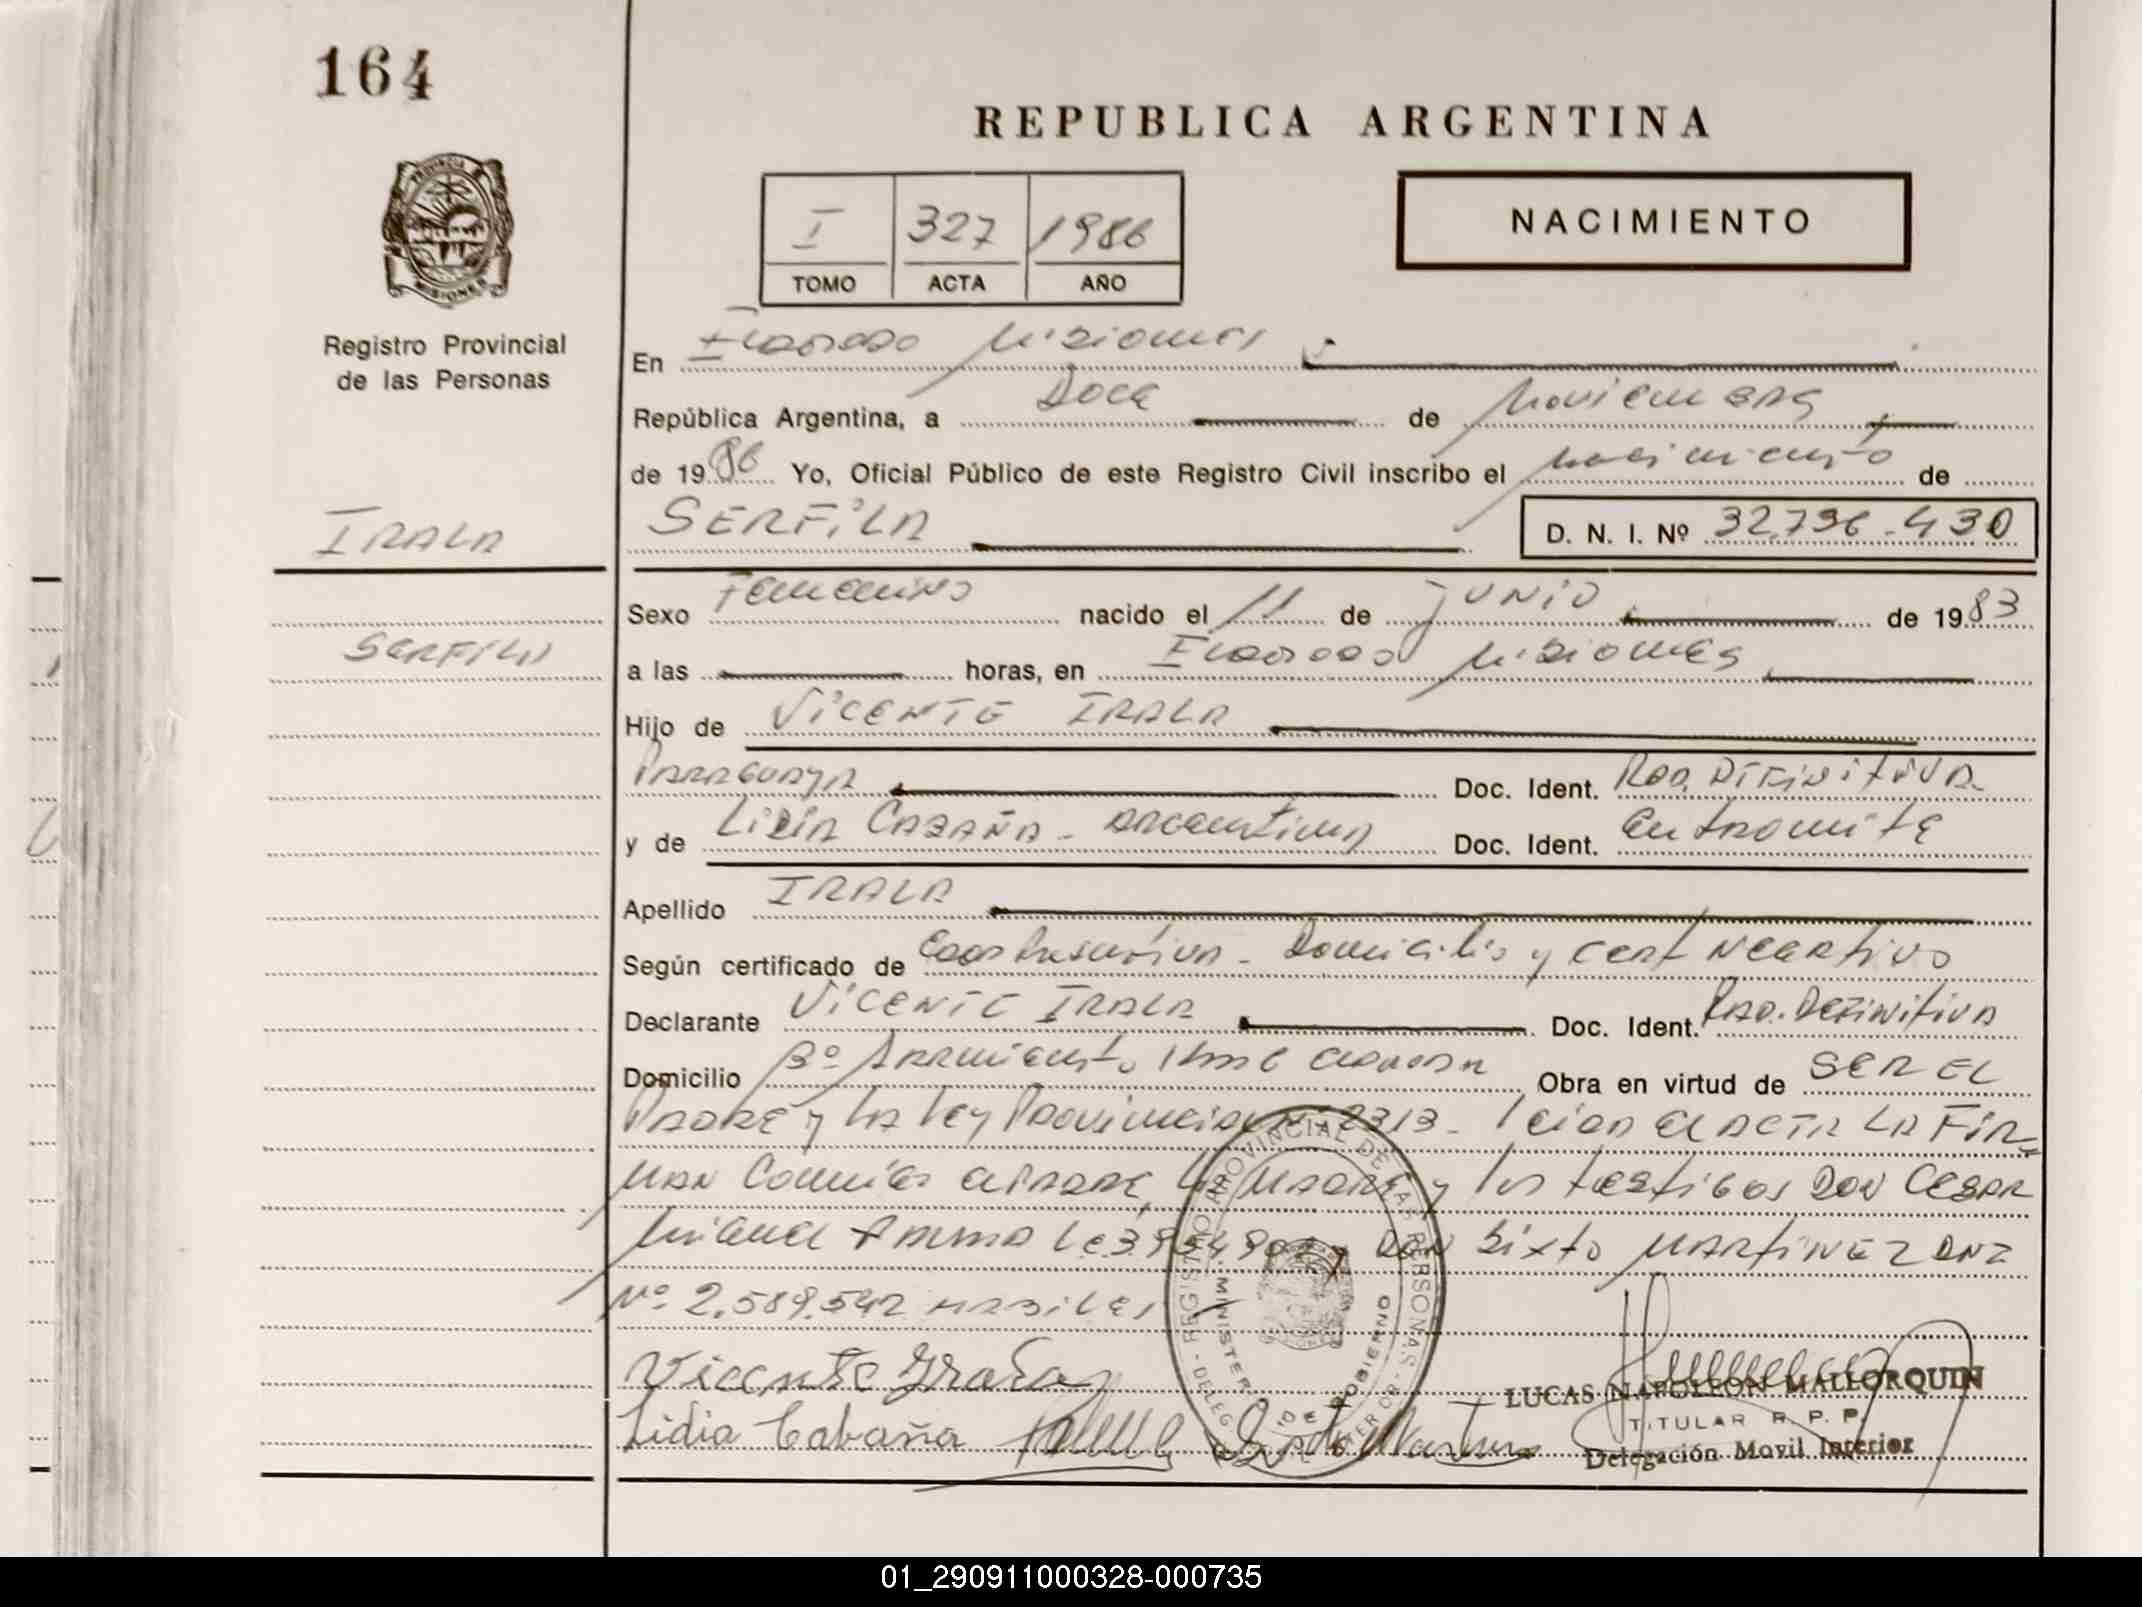 164
REPUBLICA ARGENTINA
NACIMIENTO
I 327 1986
TOMO ACTA AÑO
PROVINCIA
MISIONES
Registro Provincial
de las Personas
En Eldorado Misiones
República Argentina, a Doce de Noviembre
de 1986 Yo, Oficial Público de este Registro Civil inscribo el nacimiento de
IRALA
SERFILA
D. N. I. Nº 32.796.430
Sexo Femenino nacido el 11 de Junio de 1983
SERFILA
a las horas, en Eldorado Misiones
Hijo de VICENTE IRALA
PARAGUAYA Doc. Ident. Rad. DEFINITIVA
y de LIDIA CABAÑA - ARGENTINA Doc. Ident. en tramite
Apellido IRALA
Según certificado de Domicilio y cert NEGATIVO
Declarante VICENTE IRALA Doc. Ident. RAD. DEFINITIVA
Domicilio Obra en virtud de SER EL
PADRE y LA Ley Provincial Nº 2313 - leida el ACTA LA FIR-
MAN Conmigo el PADRE, la MADRE y los testigos DON CESAR
Miguel y DON Sixto MARTINEZ DNI
Nº 2.589.542 HABILES
Vicente Irala
Lidia Cabaña Sixto Martinez
REGISTRO PROVINCIAL DE LAS PERSONAS
MINISTERIO DE GOBIERNO
LUCAS NAPOLEON MALLORQUIN
TITULAR R. P. P.
Delegación Movil Interior
01_290911000328-000735